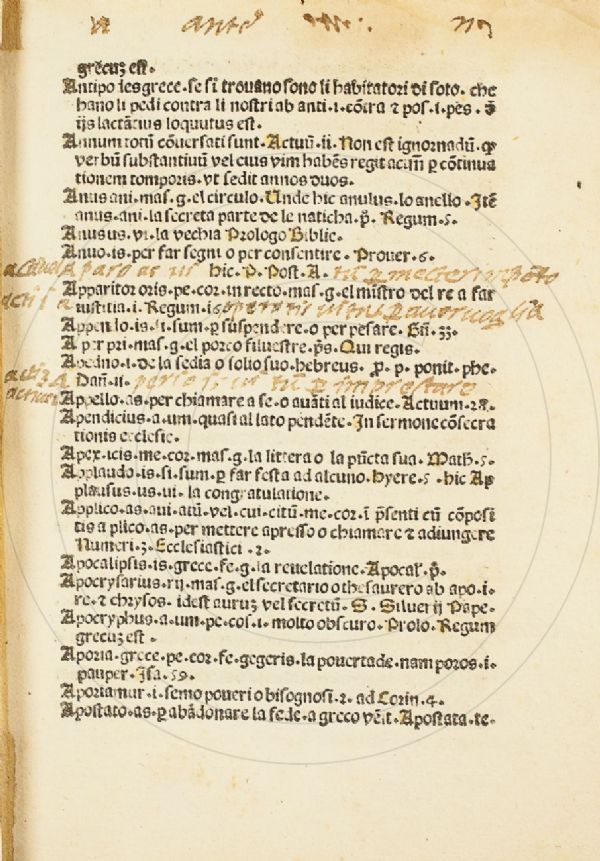 grecuʒ est.
Antipodes grece. se si trovano sono li habitatori di soto. che
hano li pedi contra li nostri ab anti. i. cōtra ⁊ pos. i. pes.
ijs lactācius loquutus est.
Annum totū cōuersati sunt. Actuū. ii. Non est ignornadū. ꝙ
verbū substantiuū vel eius vim habēs regit actm̄ ꝑ cōtinua
tionem tomporis. vt sedit annos duos.
Anus ani. mas. g. el circulo. Unde hic anulus. lo anello. Itē
anus. ani. la secreta parte de le naticha. p̄. Regum. 5.
Anus us. vi. la vechia Prologo Biblie.
Anuo. is. per far segni o per consentire. Prouer. 6.
Aparo as ui hic. P. Post. A.
Apparitor oris. pe. cor. in recto. mas. g. el mistro del re a far
iustitia. i. Regum. 16
Appendo. is. di. sum. ꝑ suspendere. o per pesare. 33.
Aper pri. mas. g. el porco siluestre. ps. Qui regis.
Apedno. i. de la sedia o solio suo. hebreus. p. p. ponit. phe.
Dan̄. 11.
Appello. as. per chiamare a se. o auāti al iudice. Actuum. 28.
Apendicius. a. um. quasi al lato pendēte. In sermone cōsecra
tionis ecclesie.
Apex. icis. me. cor. mas. g. la littera o la pūcta sua. Math. 5.
Applaudo. is. si. sum. ꝑ far festa ad alcuno. Hyere. 5. hic Ap
plausus. us. ui. la congratulatione.
Applico. as. aui. atū. vel. cui. citū. me. cor. ī p̄senti cū cōposi
tis a plico. as. per mettere apresso o chiamare ⁊ adiungere
Numeri. 3. Ecclesiastici. 2.
Apocalipsis. is. grece. fe. g. la reuelatione. Apocal. p̄.
Apocrysarius. rij. mas. g. el secretario o thesaurero ab apo. i.
re. ⁊ chrysos. idest auruʒ vel secretū. S. Siluerij Pape.
Apocryphus. a. um. pe. cor. i. molto obscuro. Prolo. Regum
grecuʒ est.
Aporia. grece. pe. cor. fe. gegeris. la pouertade. nam poros. i.
pauper. Isa. 59.
Aporiamur. i. semo poueri o bisognosi. 2. ad Corin. 4.
Apostato. as. ꝑ abādonare la fede. a greco vēit. Apostata. te.